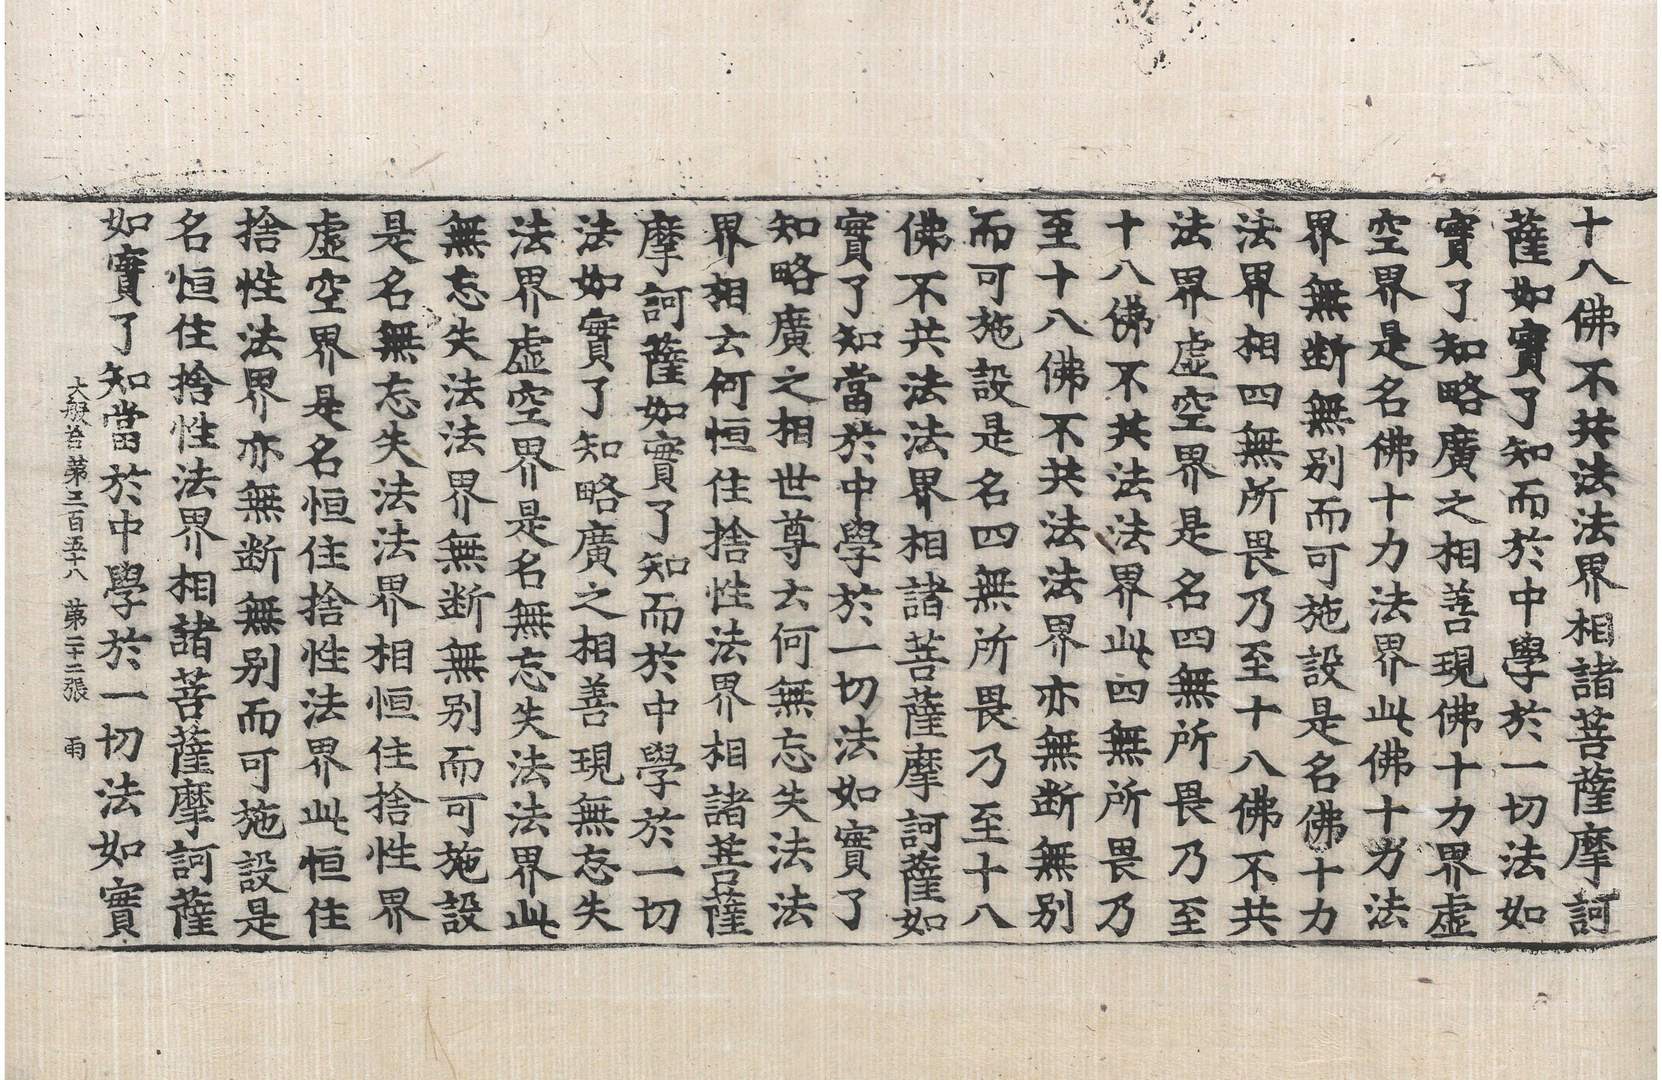 十八佛不共法法界相諸菩薩摩訶
薩如實了知而於中學於一切法如
實了知略廣之相善現佛十力界虛
空界是名佛十力法界此佛十力法
界無断無別而可施設是名佛十力
法界相四無所畏乃至十八佛不共
法界虛空界是名四無所畏乃至
十八佛不共法法界此四無所畏乃
至十八佛不共法法界亦無断無別
而可施設是名四無所畏乃至十八
佛不共法法界相諸菩薩摩訶薩如
實了知當於中學於一切法如實了
知略廣之相世尊云何無忘失法法
界相云何恒住捨性法界相諸菩薩
摩訶薩如實了知而於中學於一切
法如實了知略廣之相善現無忘失
法界虛空界是名無忘失法法界此
無忘失法法界無断無別而可施設
是名無忘失法法界相恒住捨性界
虛空界是名恒住捨性法界此恒住
捨性法界亦無断無別而可施設是
名恒住捨性法界相諸菩薩摩訶薩
如實了知當於中學於一切法如實
大般若第三百五十八 第二十二張 雨